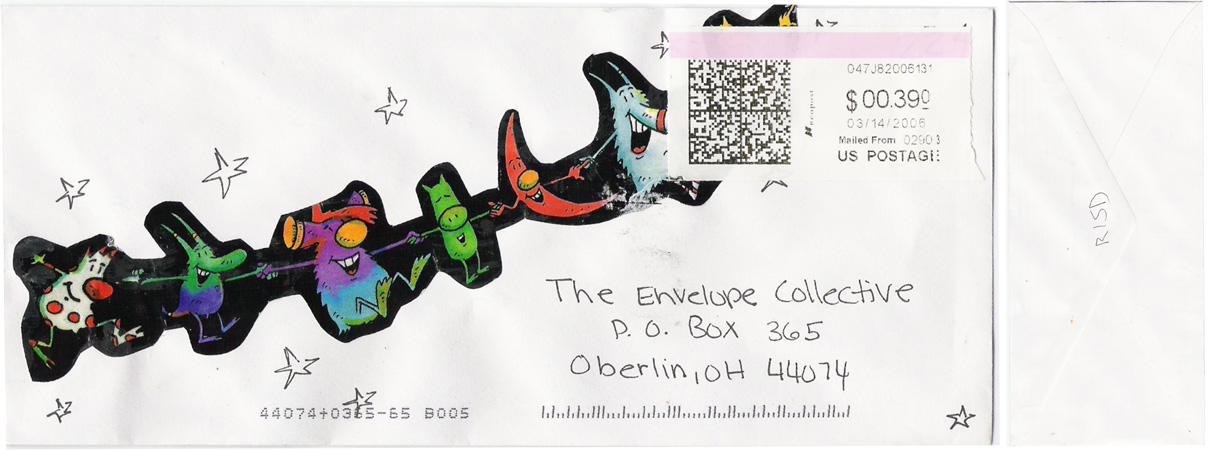 047J82006131
$00.390
neopost
03/14/2006
Mailed From 02903
US POSTAGE
The Envelope Collective
P. O. Box 365
Oberlin, OH 44074
44074+0365-65 B005
RISD